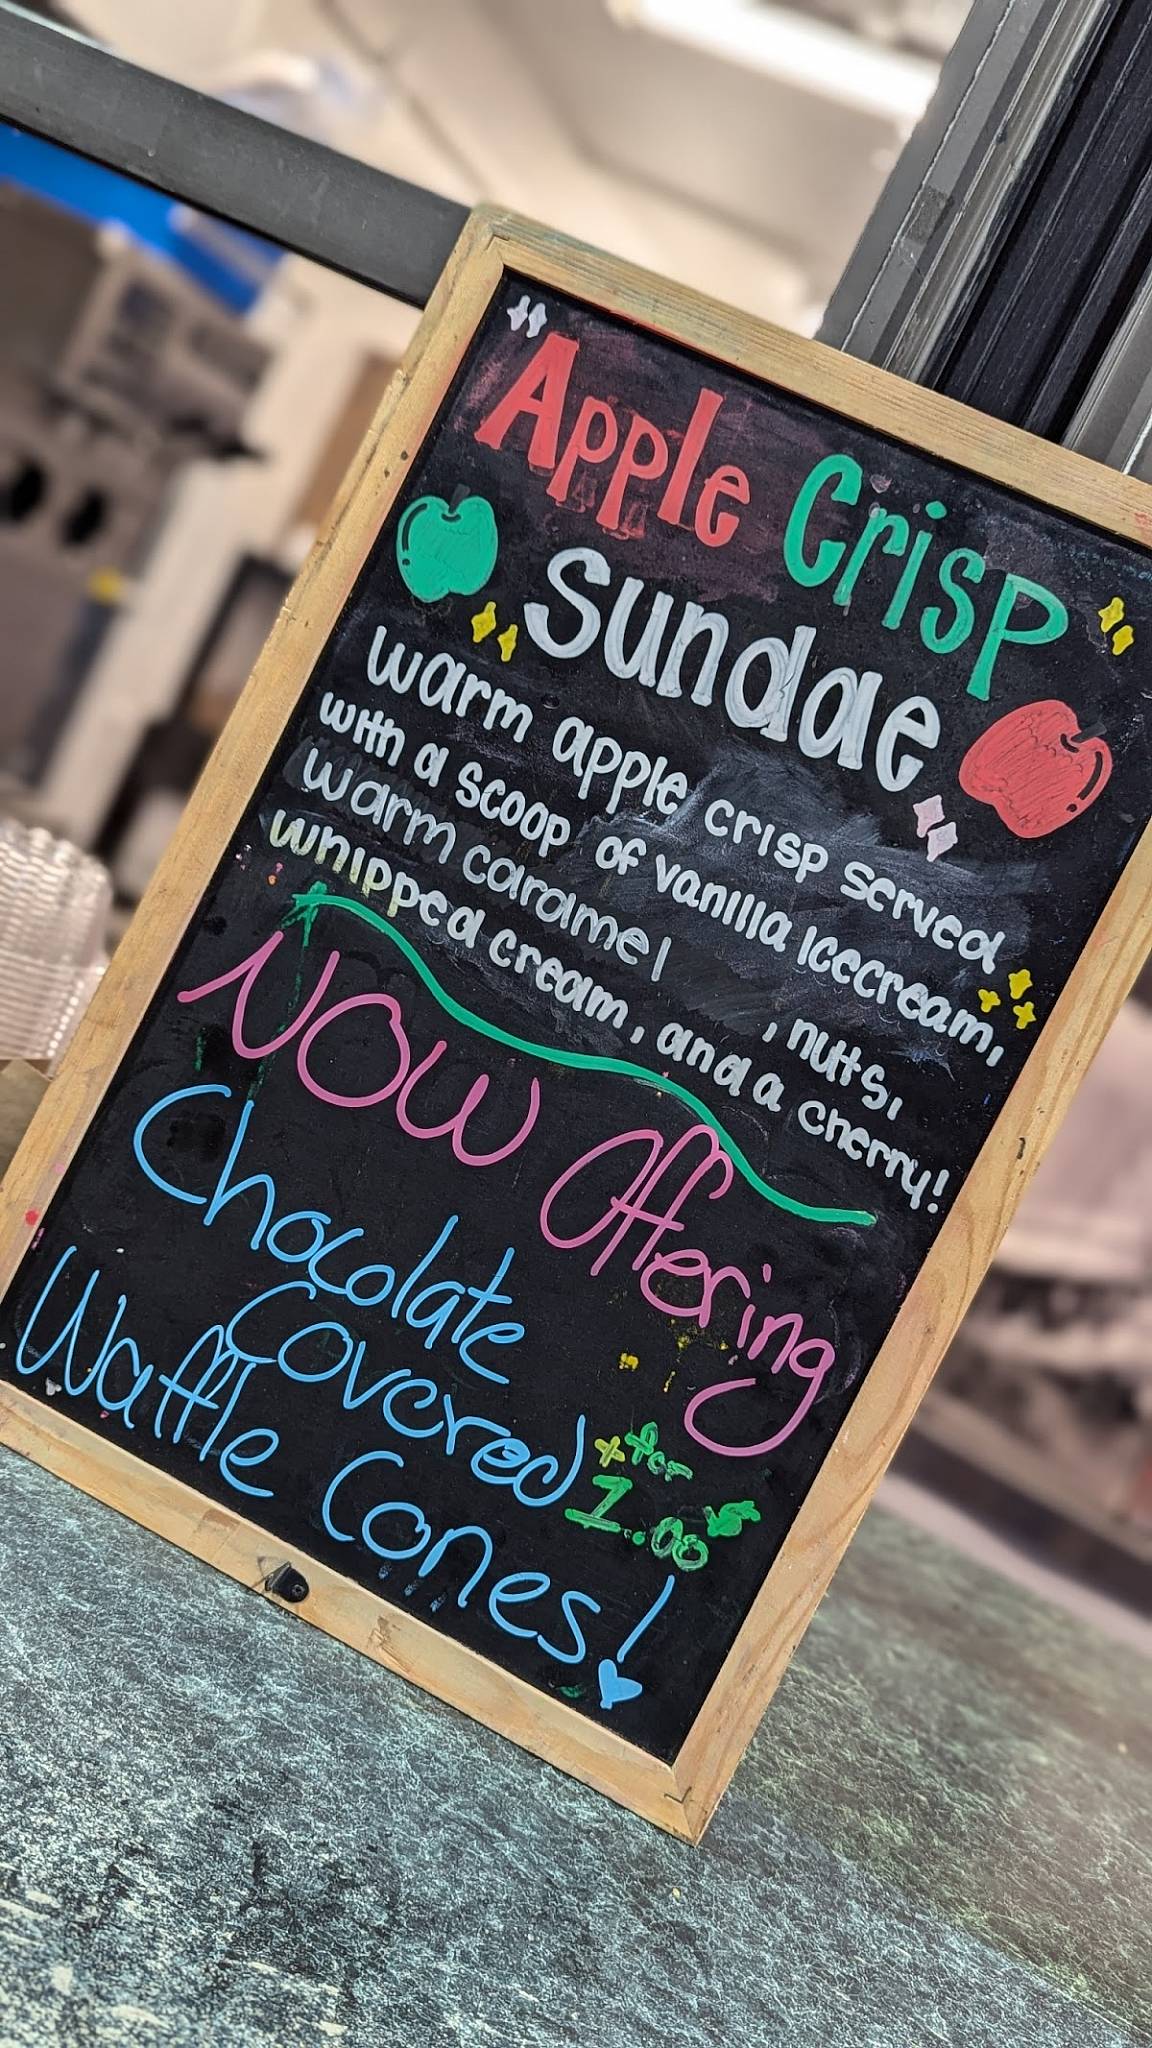 Apple Crisp
Sundae
warm apple crisp served
with a scoop of vanilla icecream,
warm caramel , nuts,
whipped cream, and a cherry!
NOW Offering
Chocolate
Covered
Waffle Cones!
+ for
1.00$